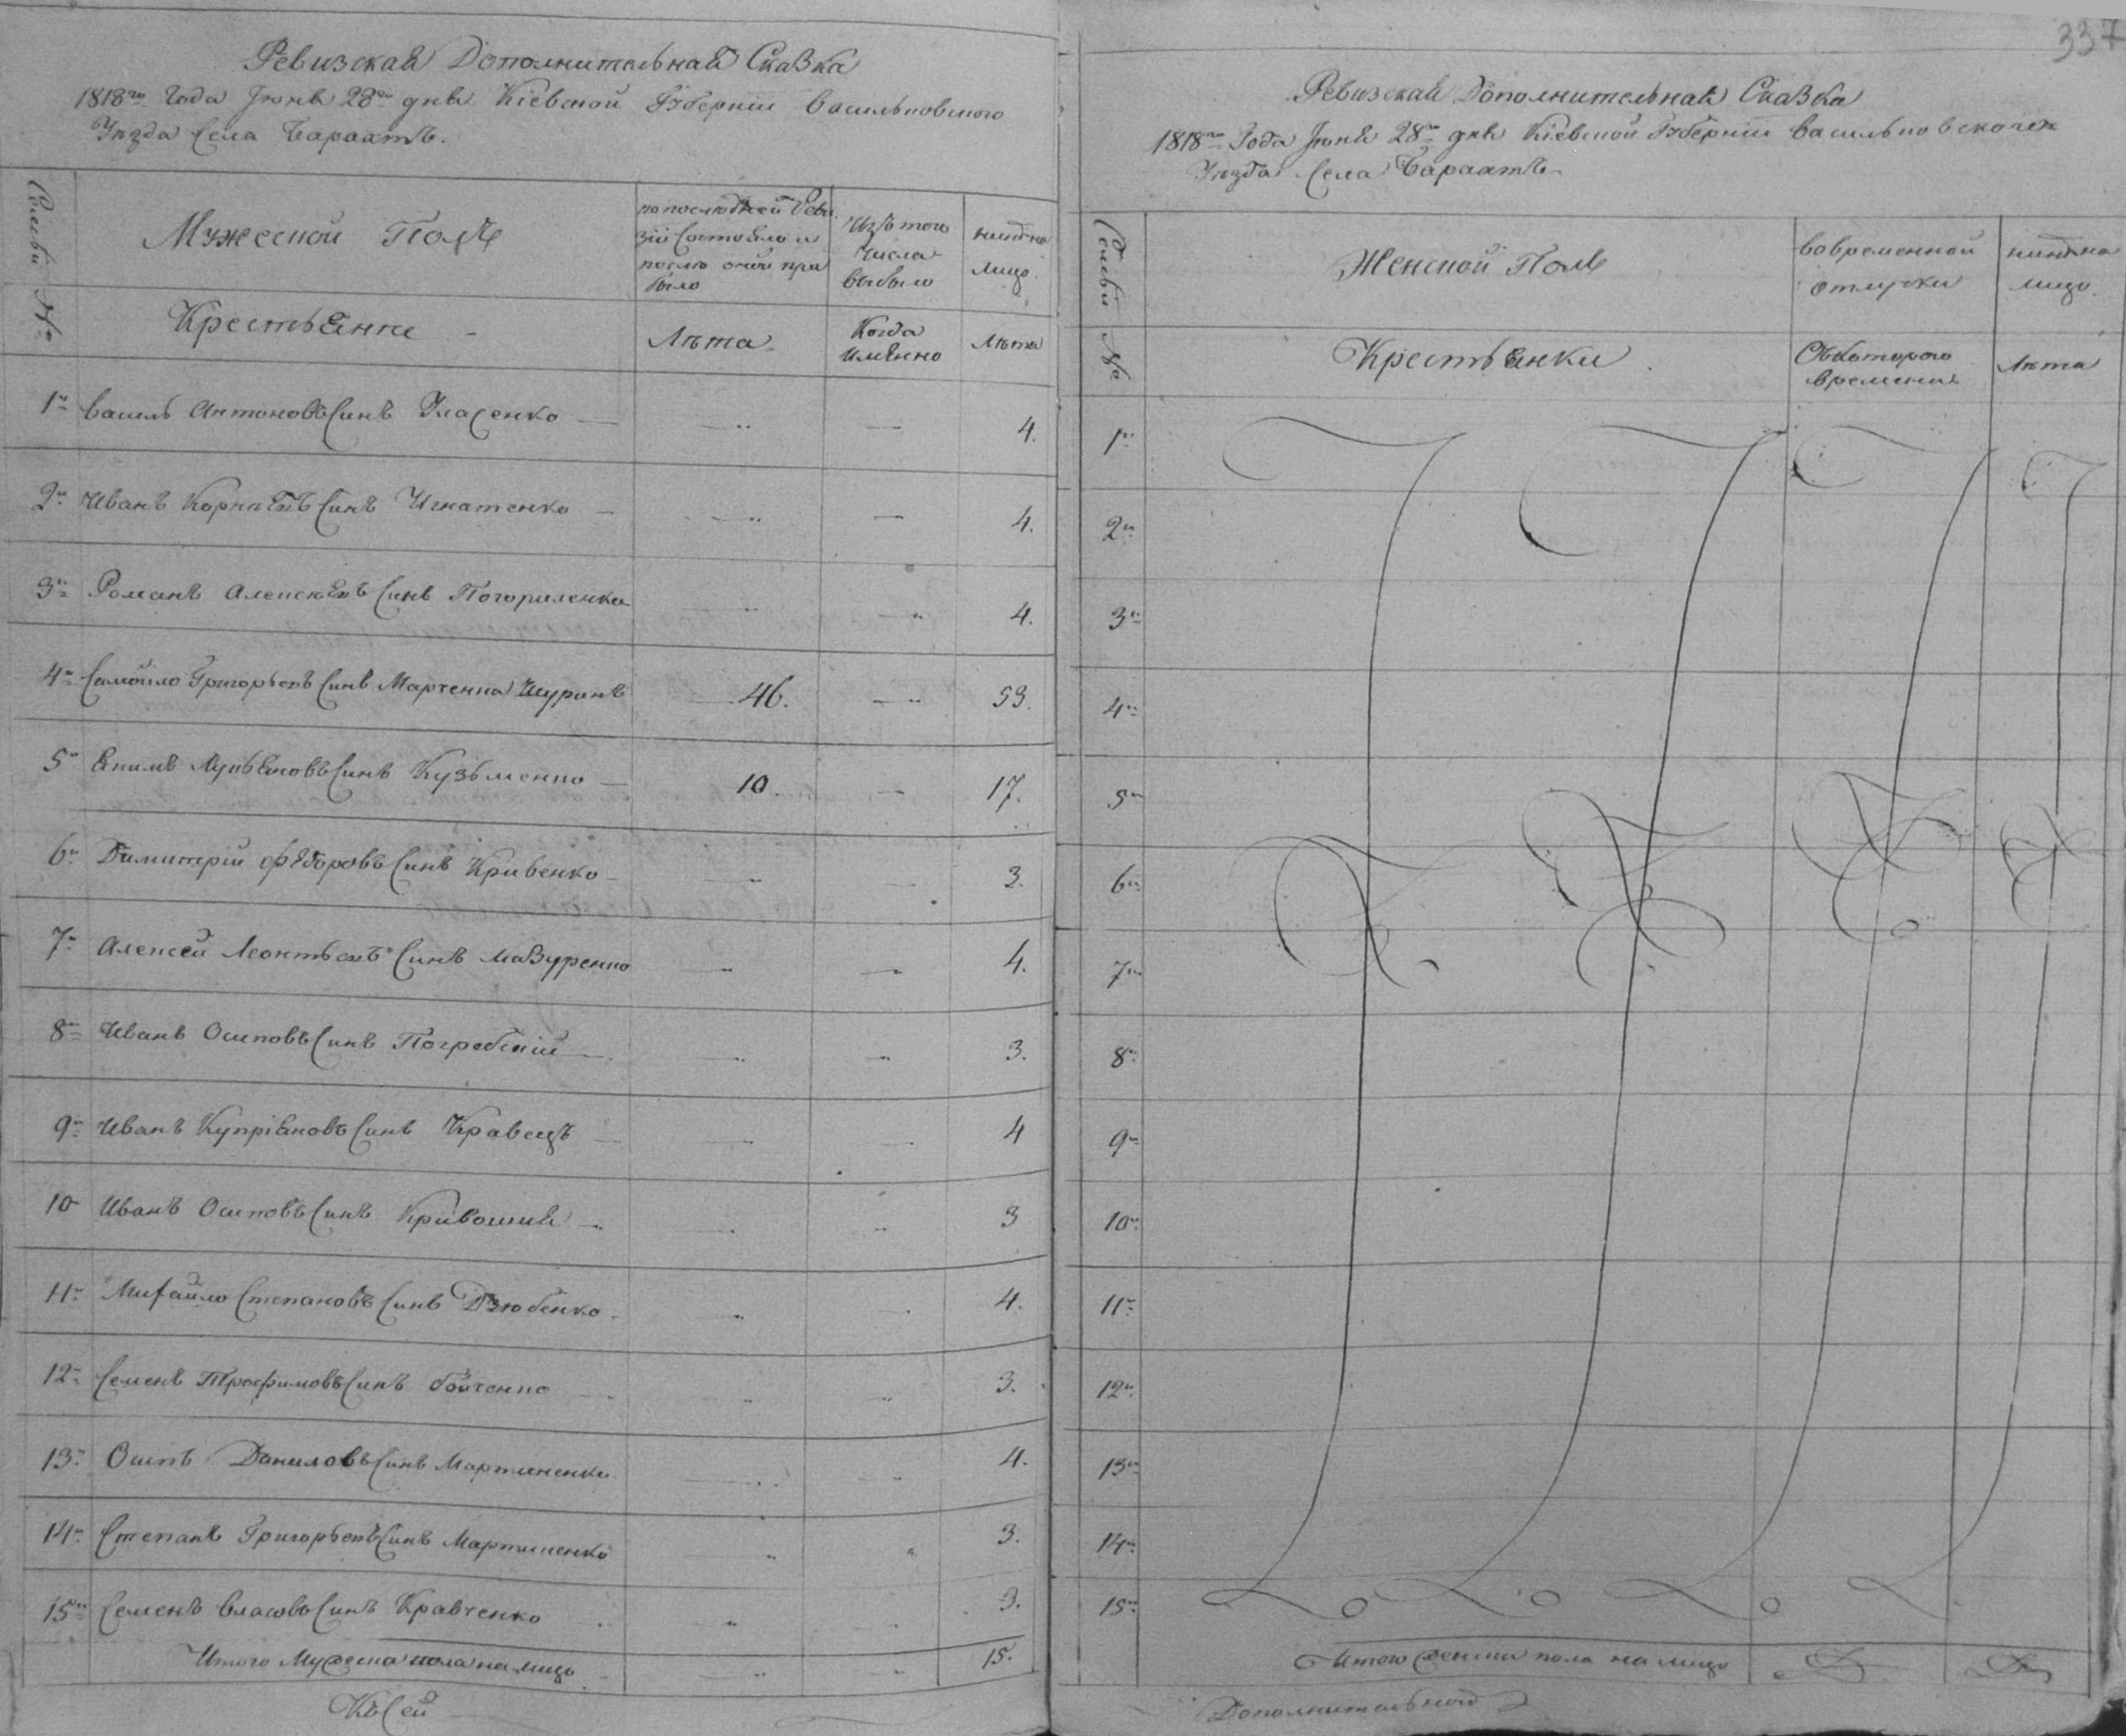 Ревизская Дополнительная Сказка
1818го Года Іюня 28го дня Кіевской Губерніи Васильковского
Уезда Села Барахтъ.
Семьи №
Мужеской Полъ
по последней Реви
зіи Состояло и
после оной при
было
Изъ того
числа
выбыло
ныне на
лицо
Крестьяне
Лета
Когда
именно
Лета
1й Василь Антоновъ Синъ Уласенко — — — 4.
2й Иванъ Корнеевъ Синъ Игнатенко — — — 4.
3й Романъ Алексеевъ Синъ Погориленко — — 4.
4й Самойло Григорьевъ Синъ Марченка Шуринъ 46. — 53.
5й Екимъ Лукьяновъ Синъ Кузьменко — 10. — 17.
6й Димитрій Федоровъ Синъ Кривенко — — — 3.
7й Алексей Леонтьевъ Синъ Мазуренко — — 4.
8й Иванъ Осиповъ Синъ Погребскій — — — 3.
9й Иванъ Купріяновъ Синъ Кравецъ — — — 4
10 Иванъ Осиповъ Синъ Кривошия — — — 3
11й Михайло Степановъ Синъ Дзюбенко — — — 4.
12й Семенъ Трофимовъ Синъ Бойченко — — — 3.
13й Осипъ Даниловъ Синъ Мартиненко — — 4.
14й Степанъ Григорьевъ Синъ Мартиненко 3.
15й Семенъ Власовъ Синъ Кравченко 3.
Итого Мужеска пола на лицо 15.
Къ Сей
337
Ревизская Дополнительная Сказка
1818го Года Іюня 28го дня Кіевской Губерніи Васильковского
Уезда Села Барахтъ
Семьи №
Женской Полъ
во временной
отлучки
ныне на
лицо
Крестьянки
Съ которого
времени
Лета
1й
2й
3й
4й
5й
6й
7й
8й
9й
10й
11й
12й
13й
14й
15й
Итого женска пола на лицо
Дополнительной